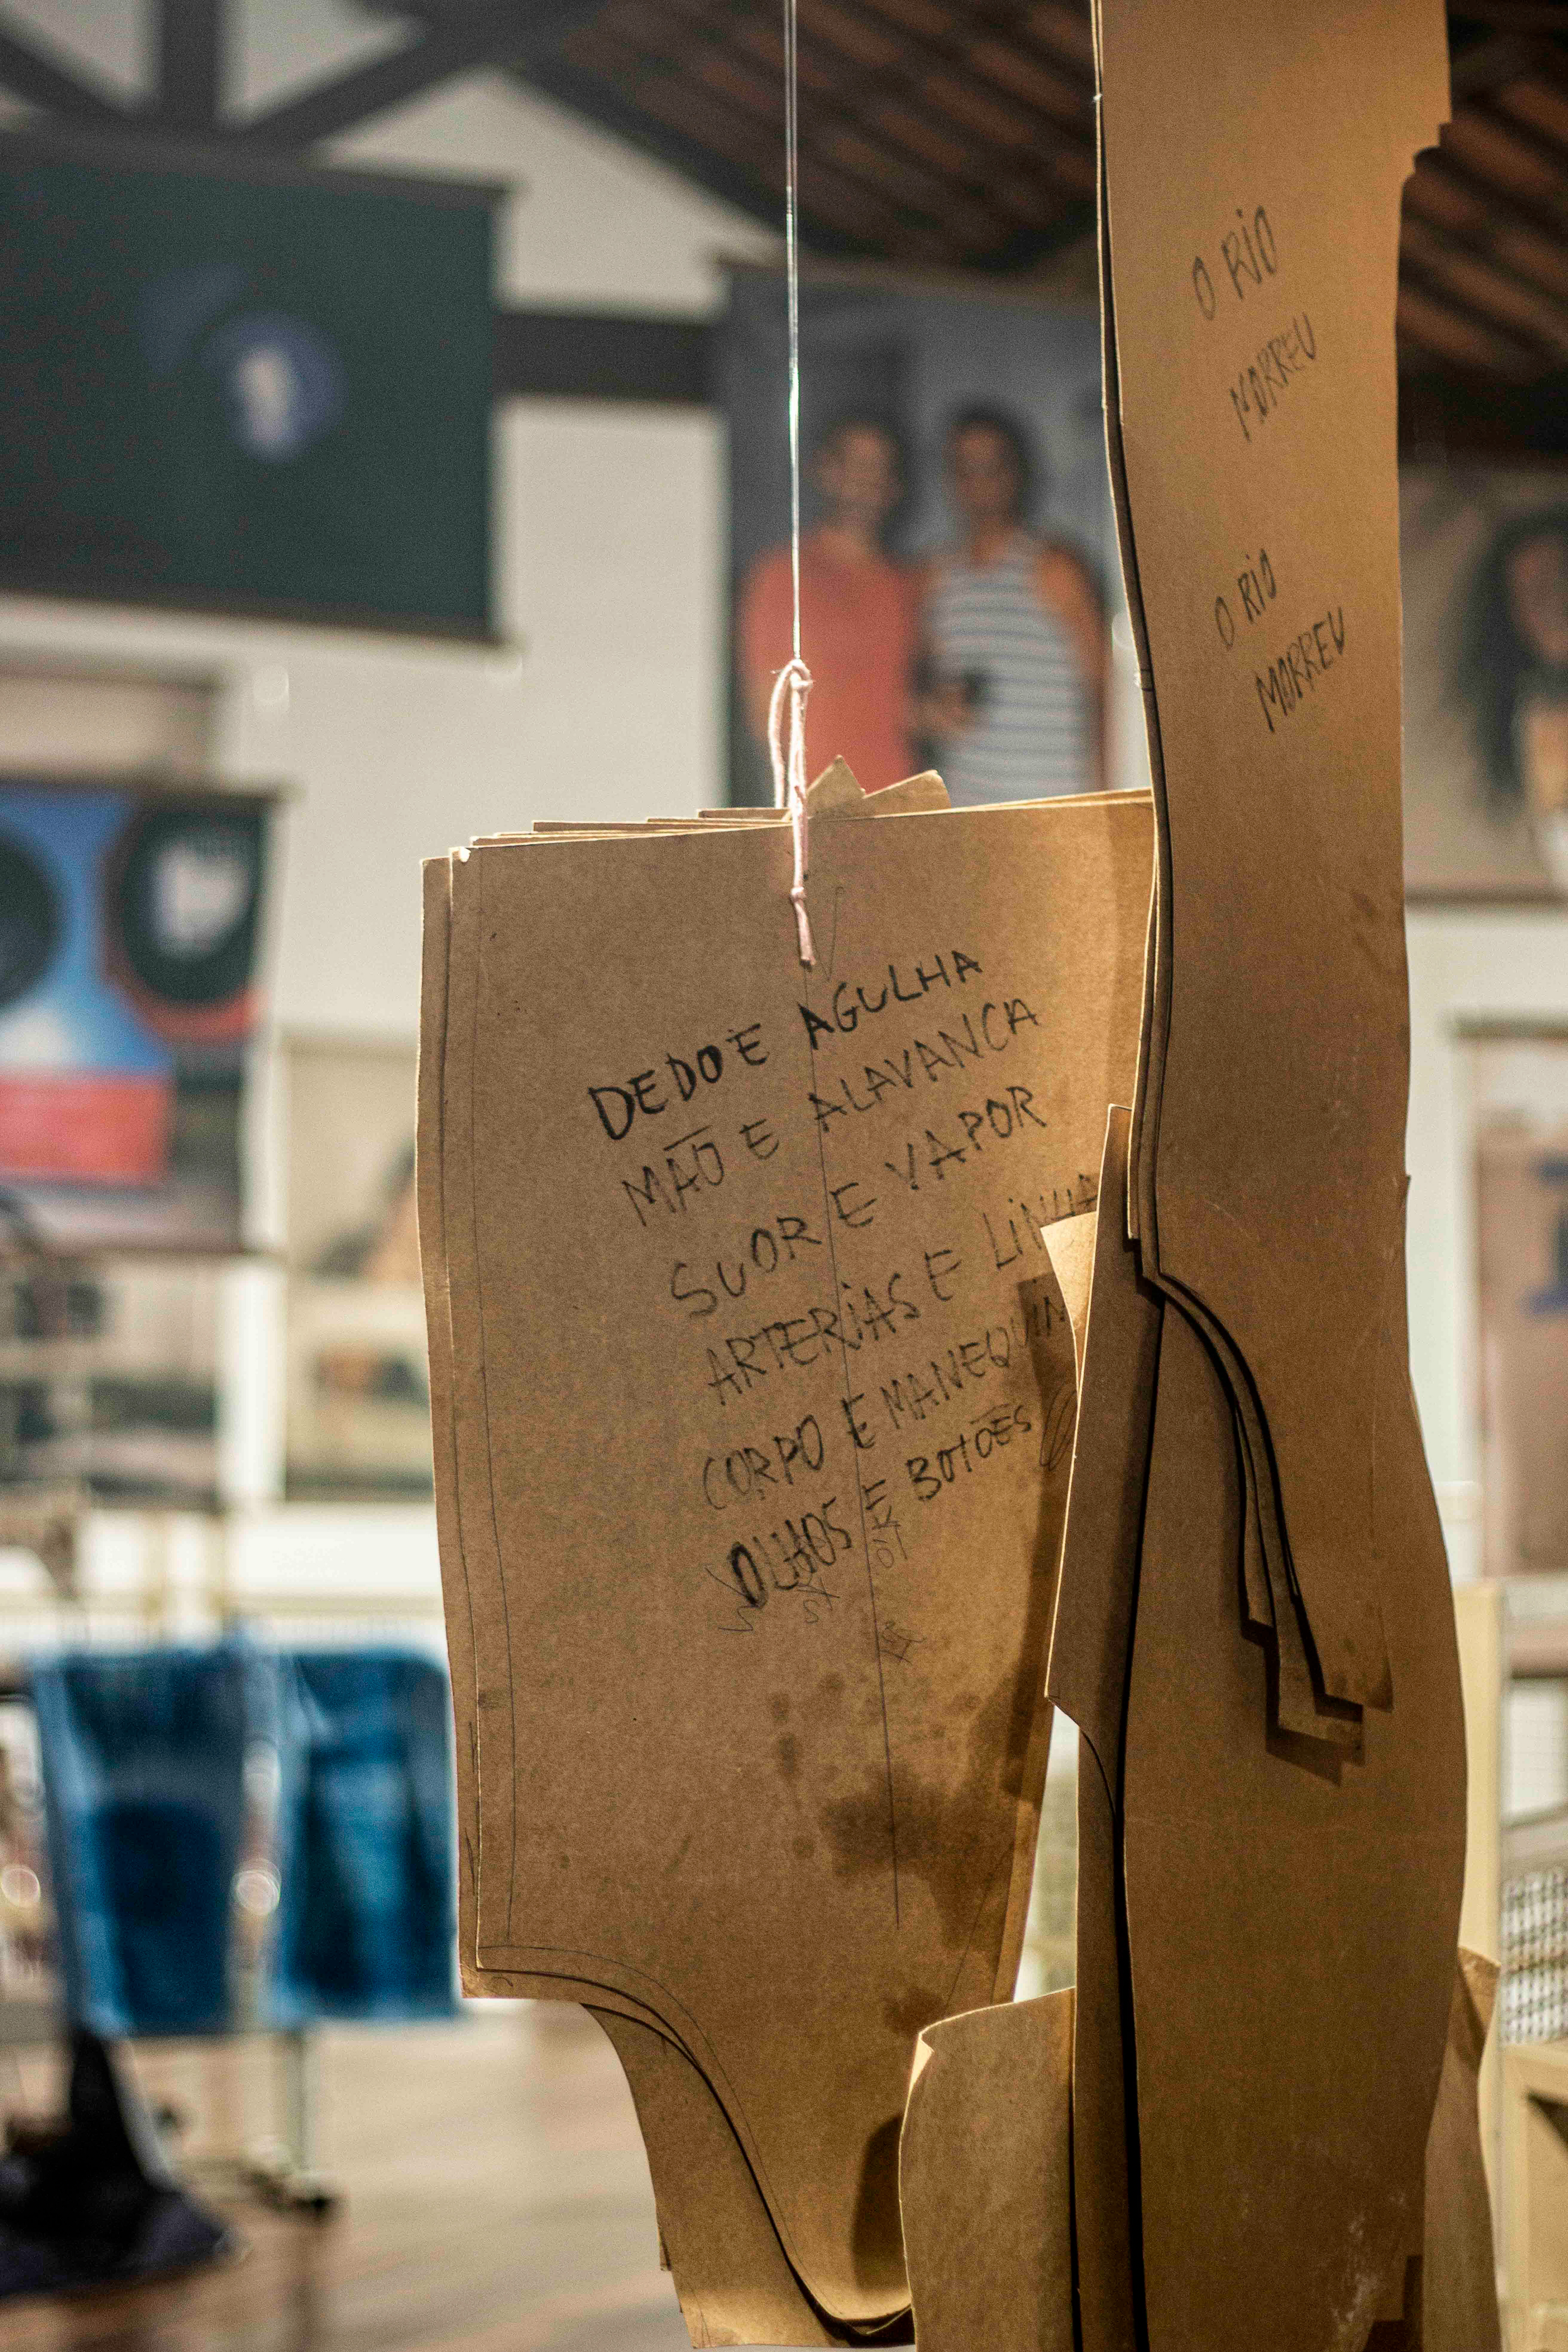 DEDO E AGULHA
MÃO E ALAVANCA
SUOR E VAPOR
ARTERIAS E LINHA
CORPO E MANEQUIM
OLHOS E BOTÕES
O RIO
MORREU
O RIO
MORREU